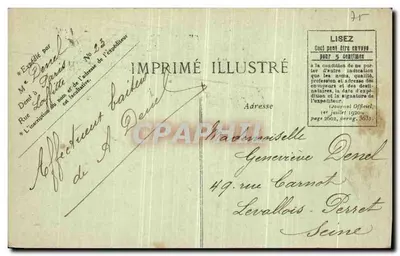 75
Expédié par
M Denel
Domé à Paris
Rue N° 23
L'inscription du nom et de l'adresse de l'expéditeur
est facultative.
Affectueux baisers
de A Denel
IMPRIMÉ ILLUSTRÉ
Adresse
Mademoiselle
Geneviève Denel
49 rue Carnot
Levallois-Perret
Seine
LISEZ
Ceci peut être envoyé
pour 5 centimes
à la condition de ne por-
ter d'autre indication
que les noms, qualité,
profession et adresse des
envoyeurs et des desti-
nataires, la date d'expé-
dition et la signature de
l'expéditeur.
(Journal Officiel,
1er juillet 1920,